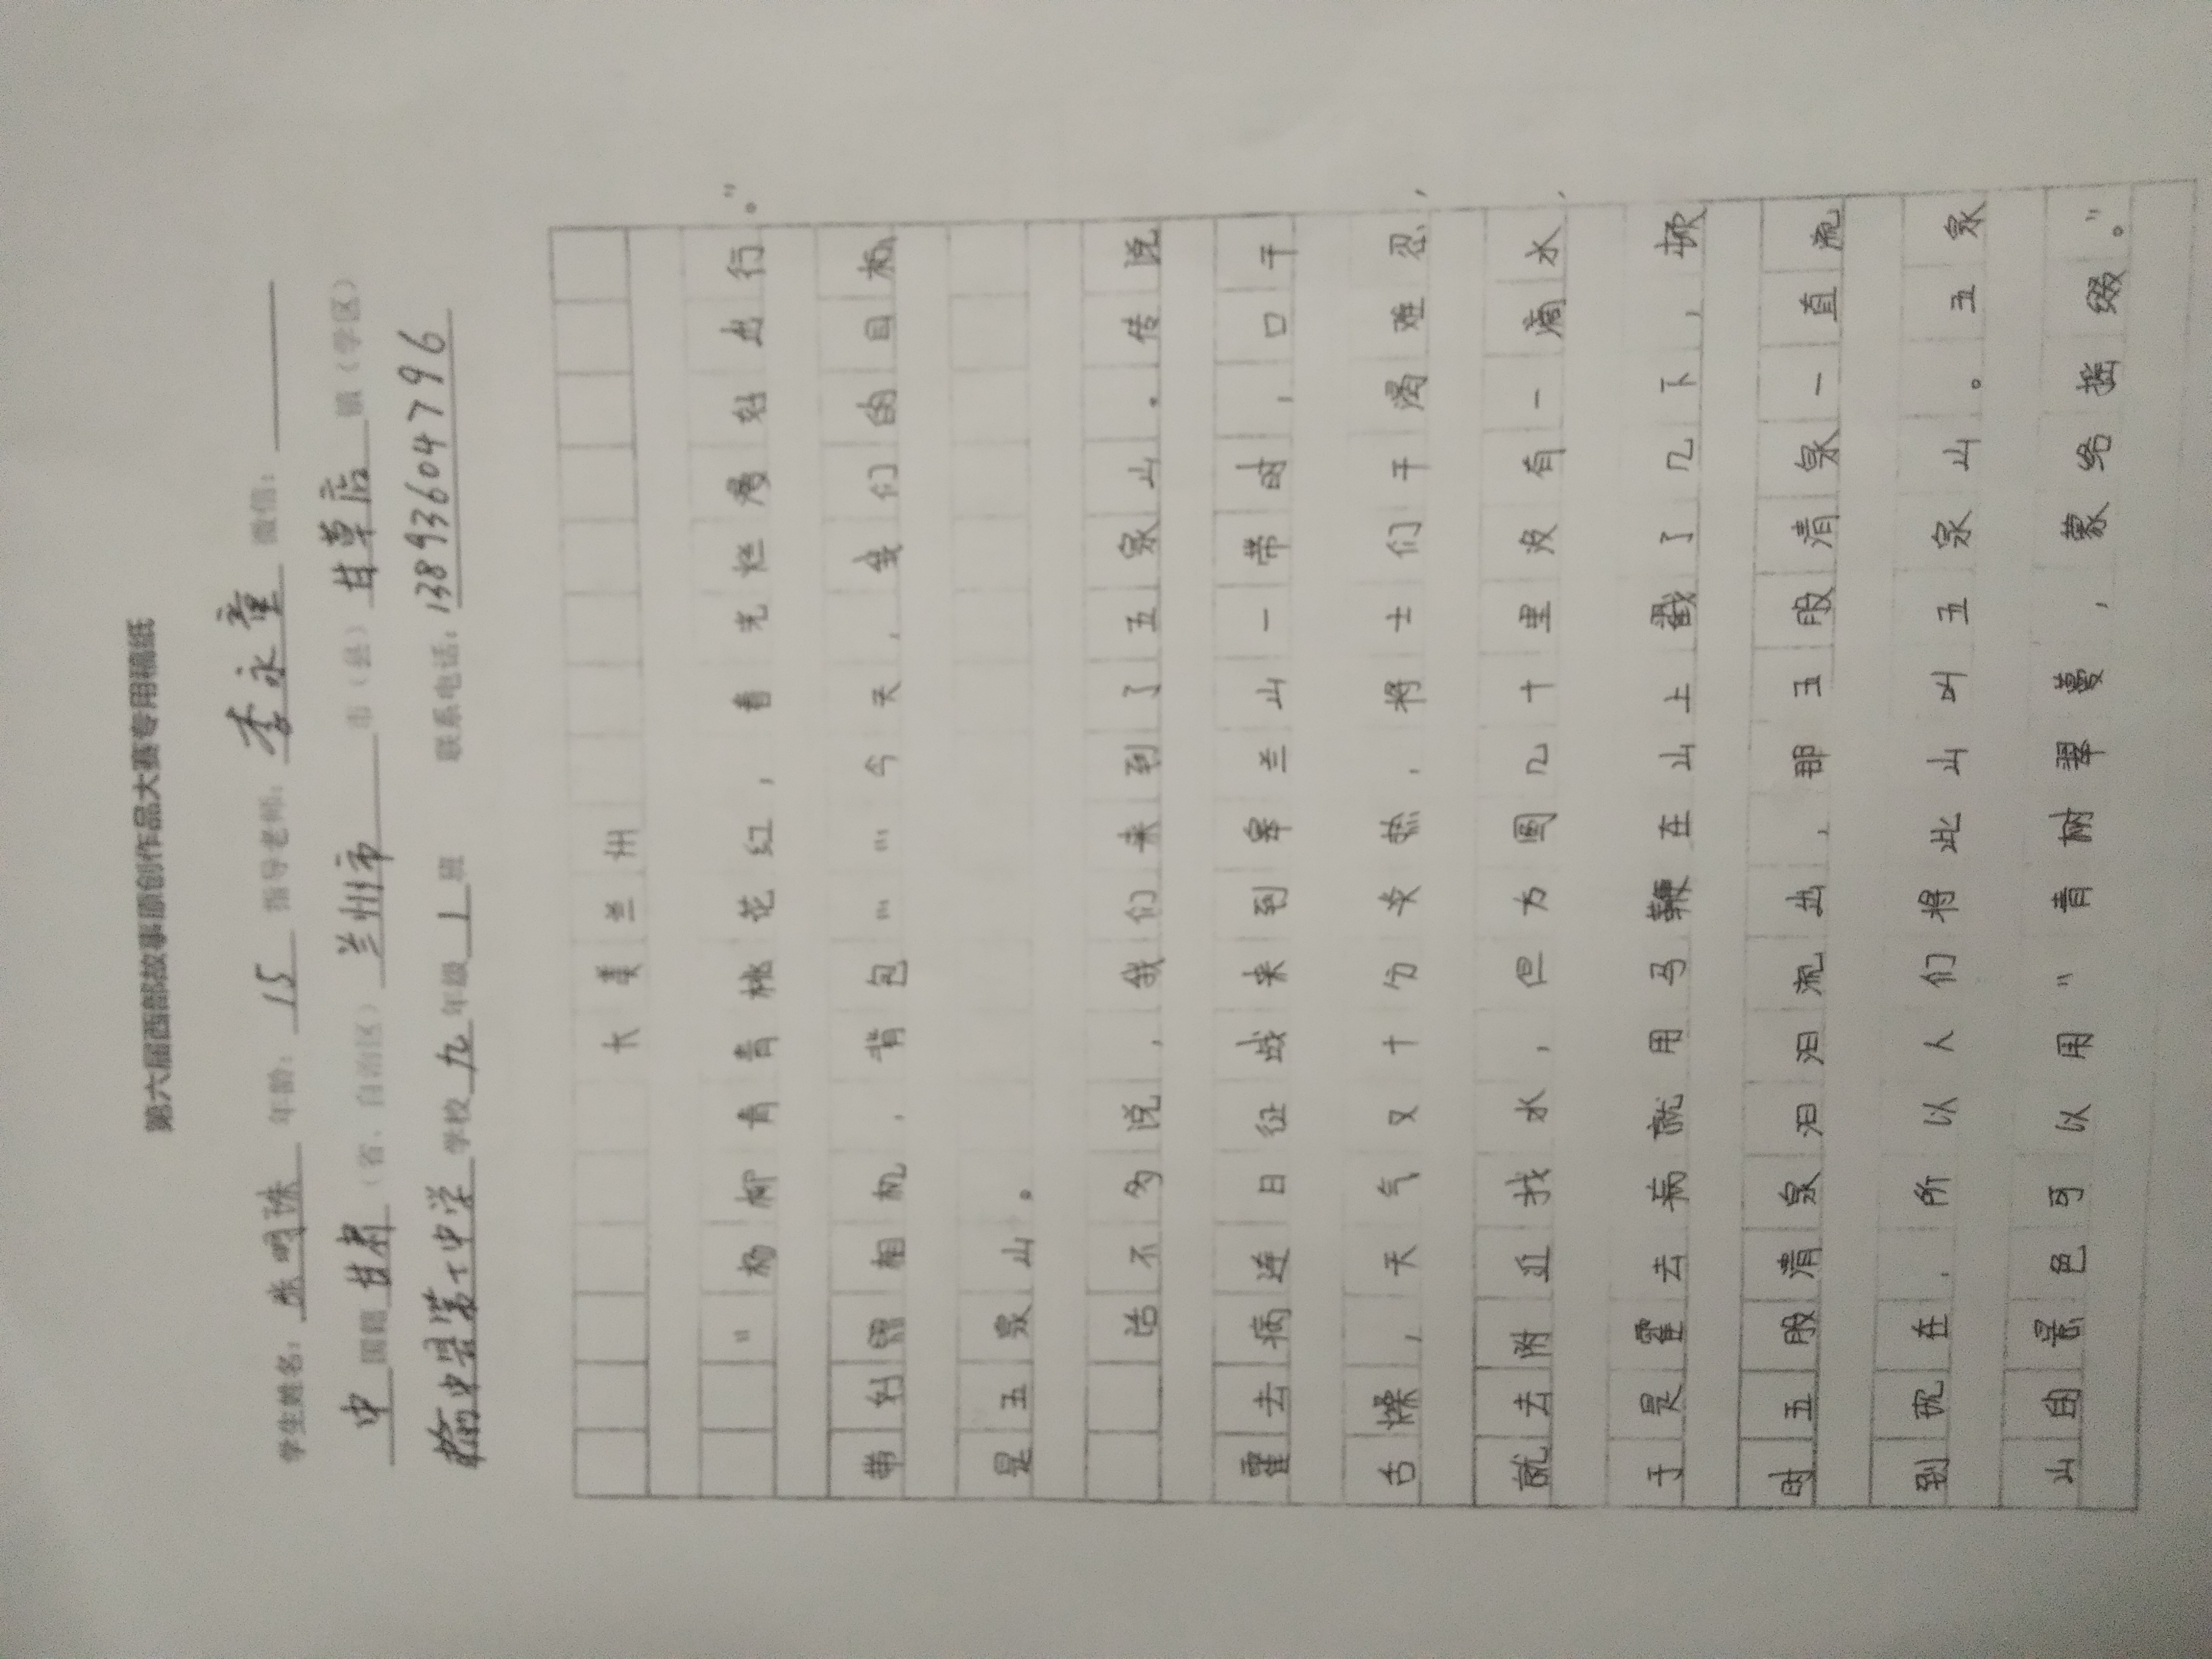 第六届西部故事原创作品大赛专用稿纸
学生姓名： 明珠 年龄：15 指导老师：李永童 微信：
中 国籍 甘肃（省、自治区）兰州市 市（县）甘草店 镇（学区）
榆中县第七中学 学校 九 年级 1 班 联系电话：13893604796
大美兰州
“杨柳青青桃花红，春光烂漫好出行。”
带好照相机，背包……今天，我们的目标
是五泉山。
话不多说，我们来到了五泉山。传说
霍去病连日征战来到皋兰山一带时，口干
舌燥，天气又十分炎热，将士们干渴难忍，
就去附近找水，但方圆几十里没有一滴水，
于是霍去病就用马鞭在山上戳了几下，顿
时五股清泉汩汩流出，那五股清泉一直流
到现在，所以人们将此山叫五泉山。五泉
山的景色可以用“青树翠蔓，蒙络摇缀。”